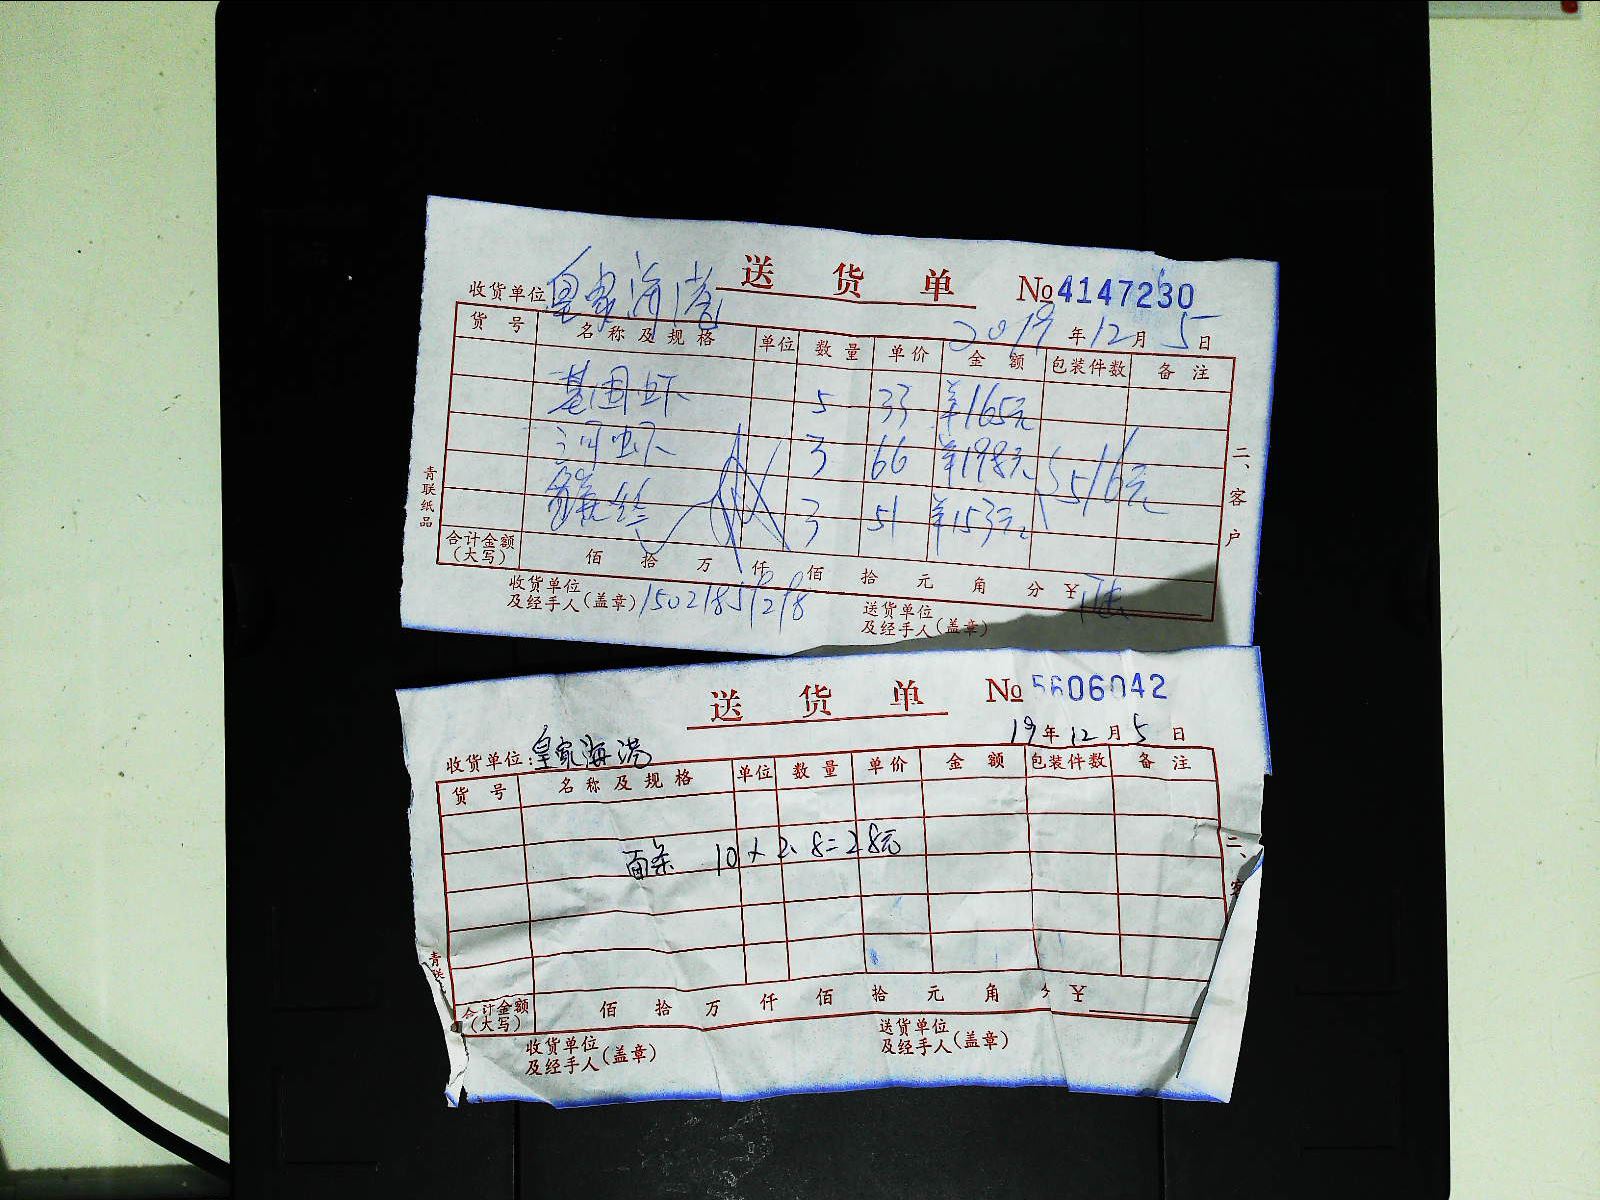 送 货 单 №4147230
收货单位 皇家海港
2019 年 12 月 5 日
货 号 名 称 及 规 格 单位 数 量 单 价 金 额 包装件数 备 注
基围虾 5 33 ¥165元
河虾 3 66 ¥198元 516元
3 51 ¥153元
合计金额(大写) 佰 拾 万 仟 佰 拾 元 角 分 ¥
收货单位及经手人(盖章) 送货单位及经手人(盖章)
青联纸品
二、客户
送 货 单 №5606042
19 年 12 月 5 日
收货单位:皇家海港
货 号 名 称 及 规 格 单位 数 量 单 价 金 额 包装件数 备 注
面条 10 × 2.8=28元
合计金额(大写) 佰 拾 万 仟 佰 拾 元 角 分 ¥
收货单位及经手人(盖章) 送货单位及经手人(盖章)
青联
二、客